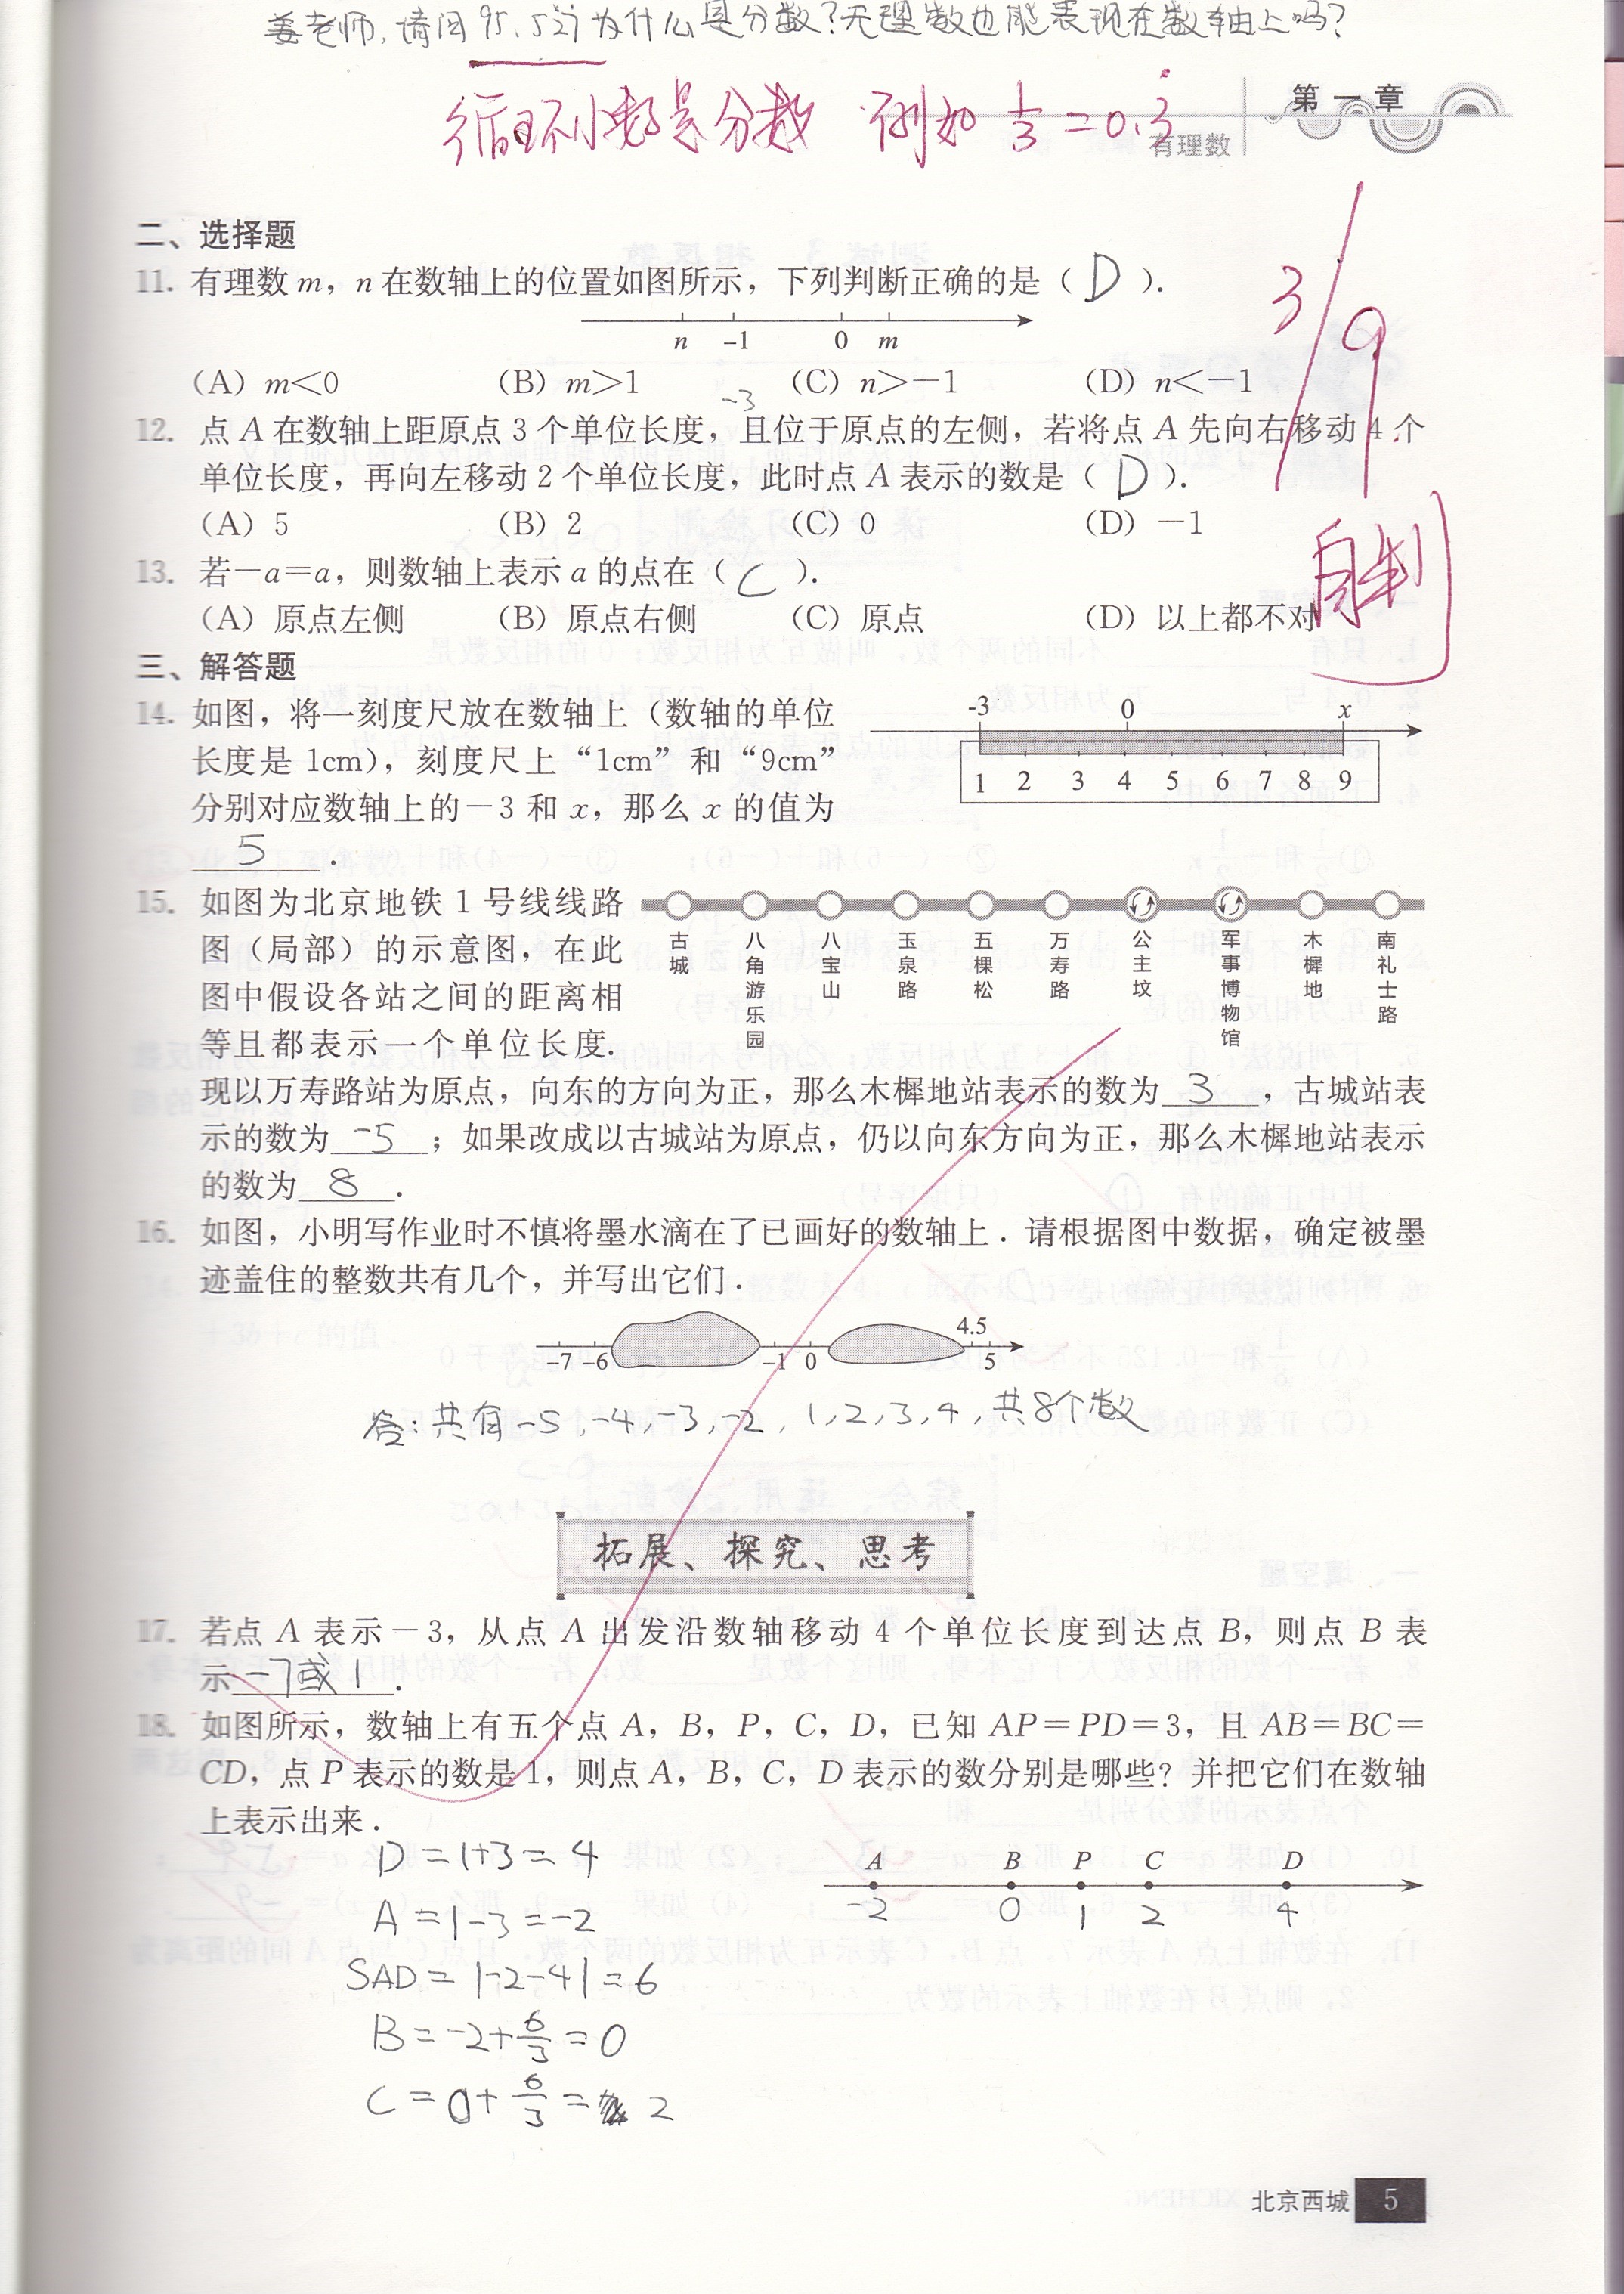 姜老师,请问95.5̇2̇7̇为什么是分数?无理数也能表现在数轴上吗?
循环小数是分数 例如 1/3 = 0.3̇
第一章
有理数
3/9
自制
二、选择题
11. 有理数 m，n 在数轴上的位置如图所示，下列判断正确的是（ D ）.
n -1 0 m
（A）m＜0 （B）m＞1 （C）n＞－1 （D）n＜－1
-3
12. 点 A 在数轴上距原点 3 个单位长度，且位于原点的左侧，若将点 A 先向右移动 4 个
单位长度，再向左移动 2 个单位长度，此时点 A 表示的数是（ D ）.
（A）5 （B）2 （C）0 （D）－1
13. 若－a＝a，则数轴上表示 a 的点在（ C ）.
（A）原点左侧 （B）原点右侧 （C）原点 （D）以上都不对
三、解答题
14. 如图，将一刻度尺放在数轴上（数轴的单位
长度是 1cm），刻度尺上“1cm”和“9cm”
分别对应数轴上的－3 和 x，那么 x 的值为
5 .
-3 0 x
1 2 3 4 5 6 7 8 9
15. 如图为北京地铁 1 号线线路
图（局部）的示意图，在此
图中假设各站之间的距离相
等且都表示一个单位长度.
古城 八角游乐园 八宝山 玉泉路 五棵松 万寿路 公主坟 军事博物馆 木樨地 南礼士路
现以万寿路站为原点，向东的方向为正，那么木樨地站表示的数为 3 ，古城站表
示的数为 -5 ；如果改成以古城站为原点，仍以向东方向为正，那么木樨地站表示
的数为 8 .
16. 如图，小明写作业时不慎将墨水滴在了已画好的数轴上．请根据图中数据，确定被墨
迹盖住的整数共有几个，并写出它们．
-7 -6 -1 0 4.5 5
答:共有-5,-4,-3,-2,1,2,3,4,共8个数
拓展、探究、思考
17. 若点 A 表示－3，从点 A 出发沿数轴移动 4 个单位长度到达点 B，则点 B 表
示 -7或1 .
18. 如图所示，数轴上有五个点 A，B，P，C，D，已知 AP＝PD＝3，且 AB＝BC＝
CD，点 P 表示的数是 1，则点 A，B，C，D 表示的数分别是哪些？并把它们在数轴
上表示出来．
D = 1+3 = 4
A = 1-3 = -2
SAD = |-2-4| = 6
B = -2+6/3 = 0
C = 0+6/3 = 2
A B P C D
-2 0 1 2 4
北京西城 5